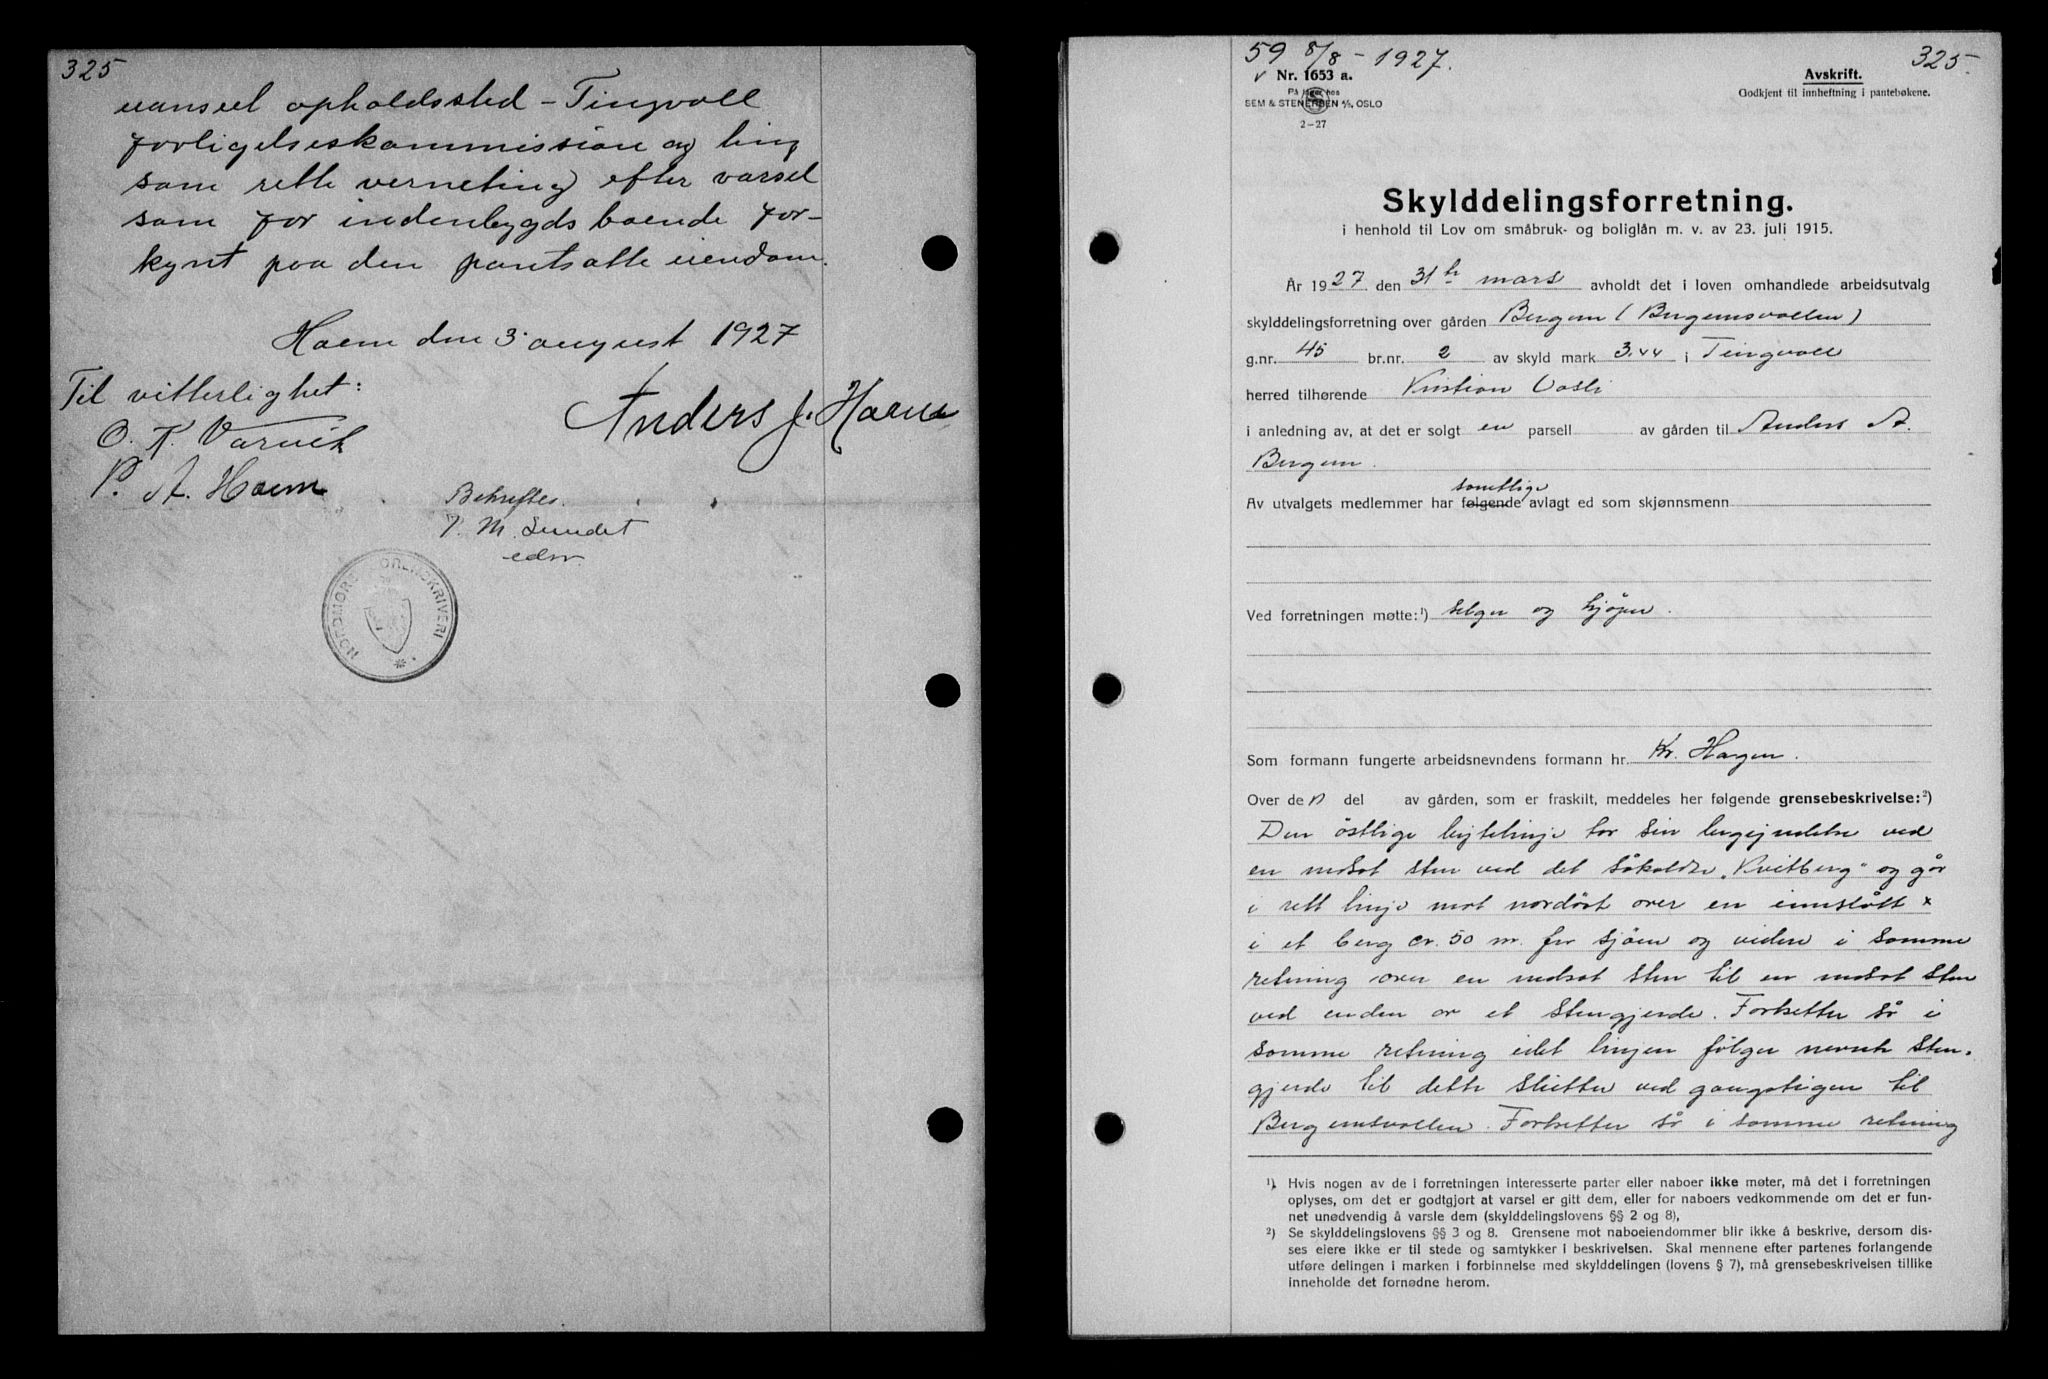 325
uanset opholdssted – Tingvoll
forligelseskommission og ting
som rette verneting efter varsel
som for indenbygds boende for-
kynt paa den pantsatte eiendom.
Hoem den 3. august 1927
Til vitterlighet:
Anders J. Hoem
O. K. Varvik
P. A. Hoem
Bekreftes.
P. M. Sundet
edsv.
NORDMØRE SORENSKRIVERI
59 8/8 – 1927.
325.
Nr. 1653 a.
På lager hos
SEM & STENERSEN A/S, OSLO
2–27
Avskrift.
Godkjent til innheftning i pantebøkene.
Skylddelingsforretning.
i henhold til Lov om småbruk- og boliglån m. v. av 23. juli 1915.
År 1927 den 31te mars avholdt det i loven omhandlede arbeidsutvalg
skylddelingsforretning over gården Bergem (Bergemsvollen)
g.nr. 45 br.nr. 2 av skyld mark 3.44 i Tingvoll
herred tilhørende Kristian Vasli
i anledning av, at det er solgt en parsell av gården til Anders A.
Bergem.
samtlige
Av utvalgets medlemmer har følgende avlagt ed som skjønnsmenn
Ved forretningen møtte:¹) selger og kjøper.
Som formann fungerte arbeidsnevndens formann hr. Kr. Hagen.
Over den del av gården, som er fraskilt, meddeles her følgende grensebeskrivelse:²)
Den østlige bytelinje tar sin begyndelse ved
en nedsat sten ved det såkaldte „Kvitberg" og går
i rett linje mot nordøst over en innslått x
i et berg ca. 50 m. fra sjøen og videre i samme
retning over en nedsat sten til en nedsat sten
ved enden av et stengjerde. Fortsetter så i
samme retning idet linjen følger nevnte sten-
gjerde til dette slutter ved gangstigen til
Bergemsvollen. Fortsetter så i samme retning
¹) Hvis nogen av de i forretningen interesserte parter eller naboer ikke møter, må det i forretningen
oplyses, om det er godtgjort at varsel er gitt dem, eller for naboers vedkommende om det er fun-
net unødvendig å varsle dem (skylddelingslovens §§ 2 og 8),
²) Se skylddelingslovens §§ 3 og 8. Grensene mot naboeiendommer blir ikke å beskrive, dersom dis-
ses eiere ikke er til stede og samtykker i beskrivelsen. Skal mennene efter partenes forlangende
utføre delingen i marken i forbinnelse med skylddelingen (lovens § 7), må grensebeskrivelsen tillike
inneholde det fornødne herom.